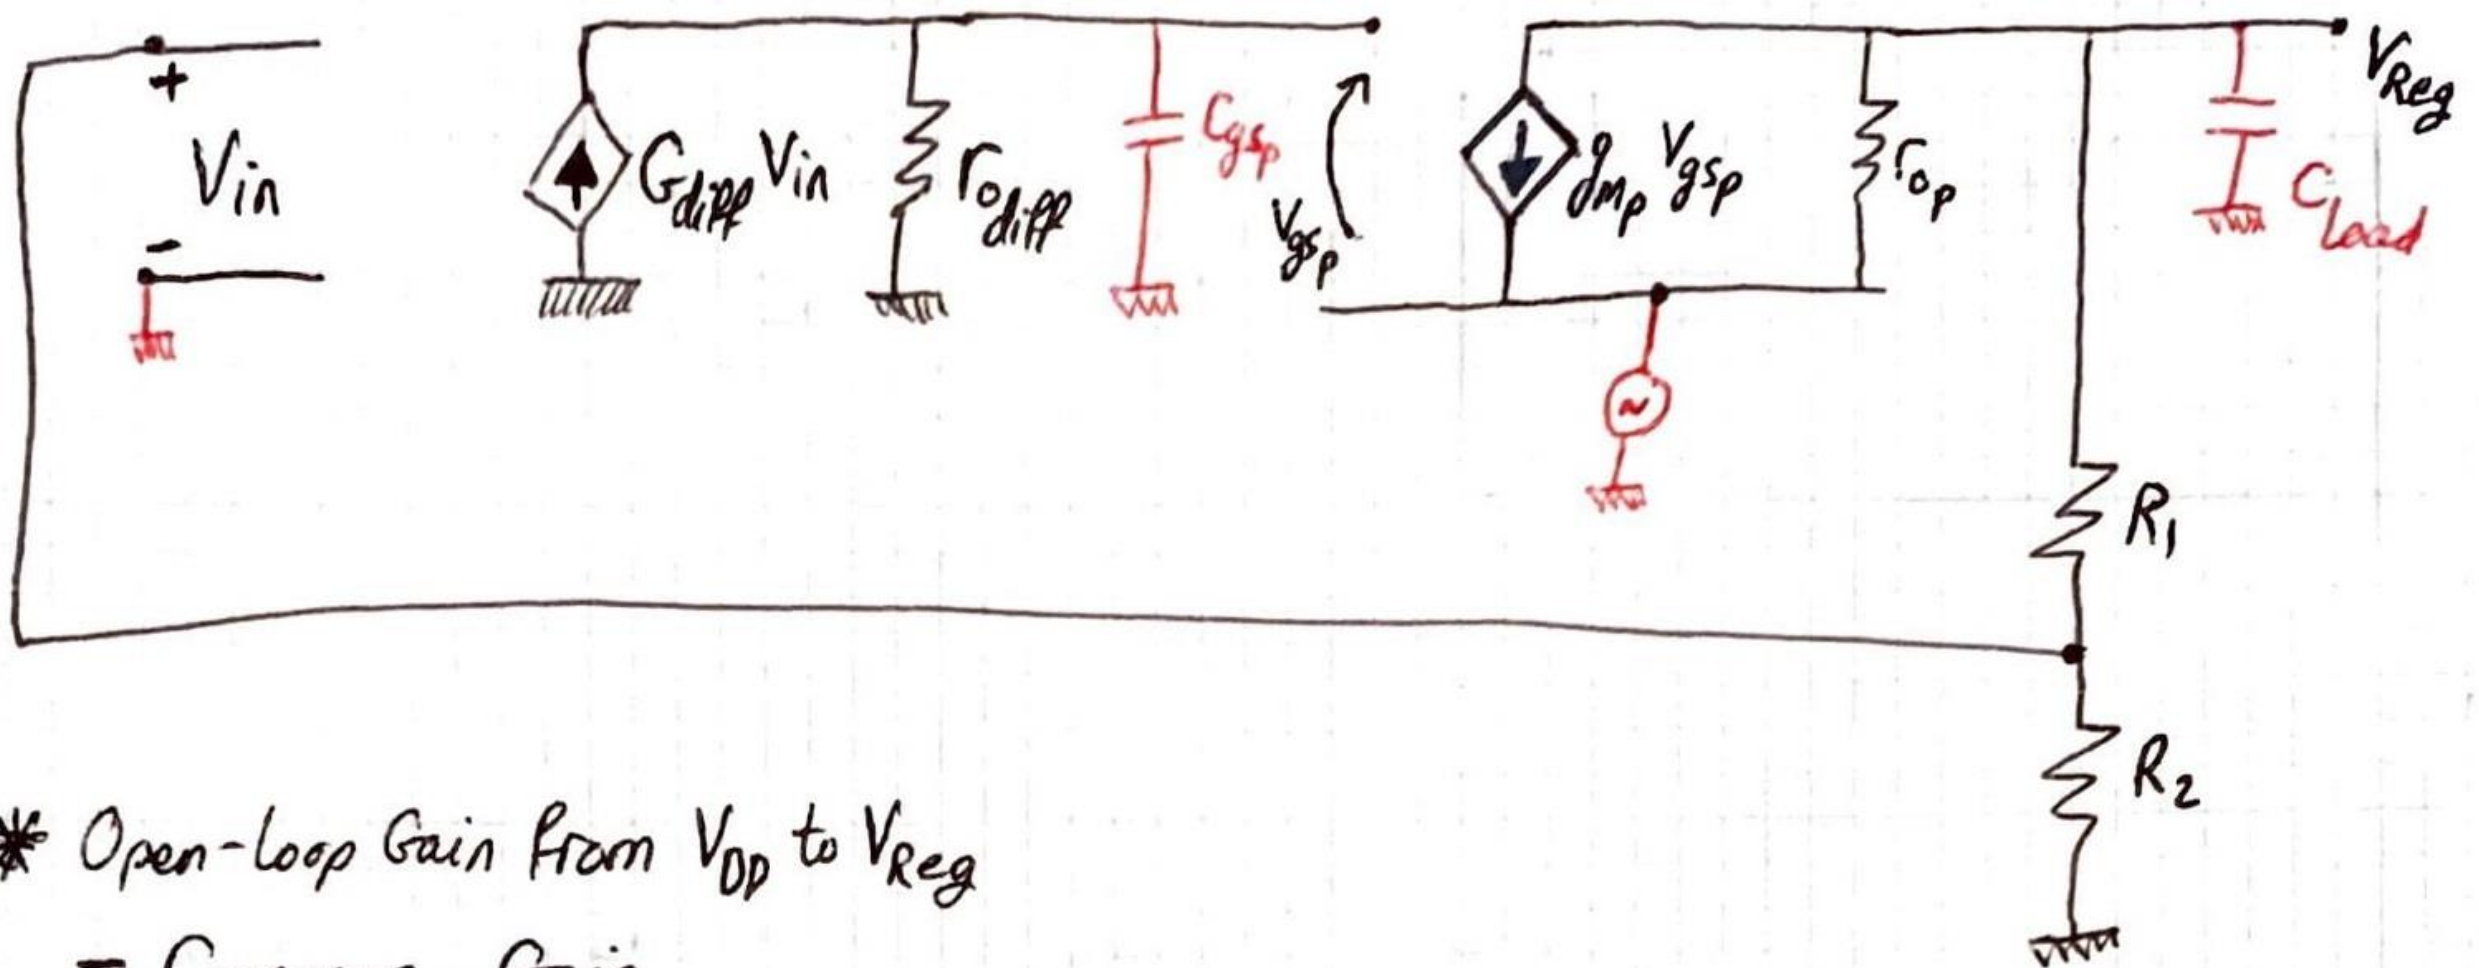 +
Vin
-
Gdiff Vin
rodiff
Cgsp
Vgsp
gmp Vgsp
rop
VReg
Cload
R1
R2
* Open-loop Gain from VDD to VReg